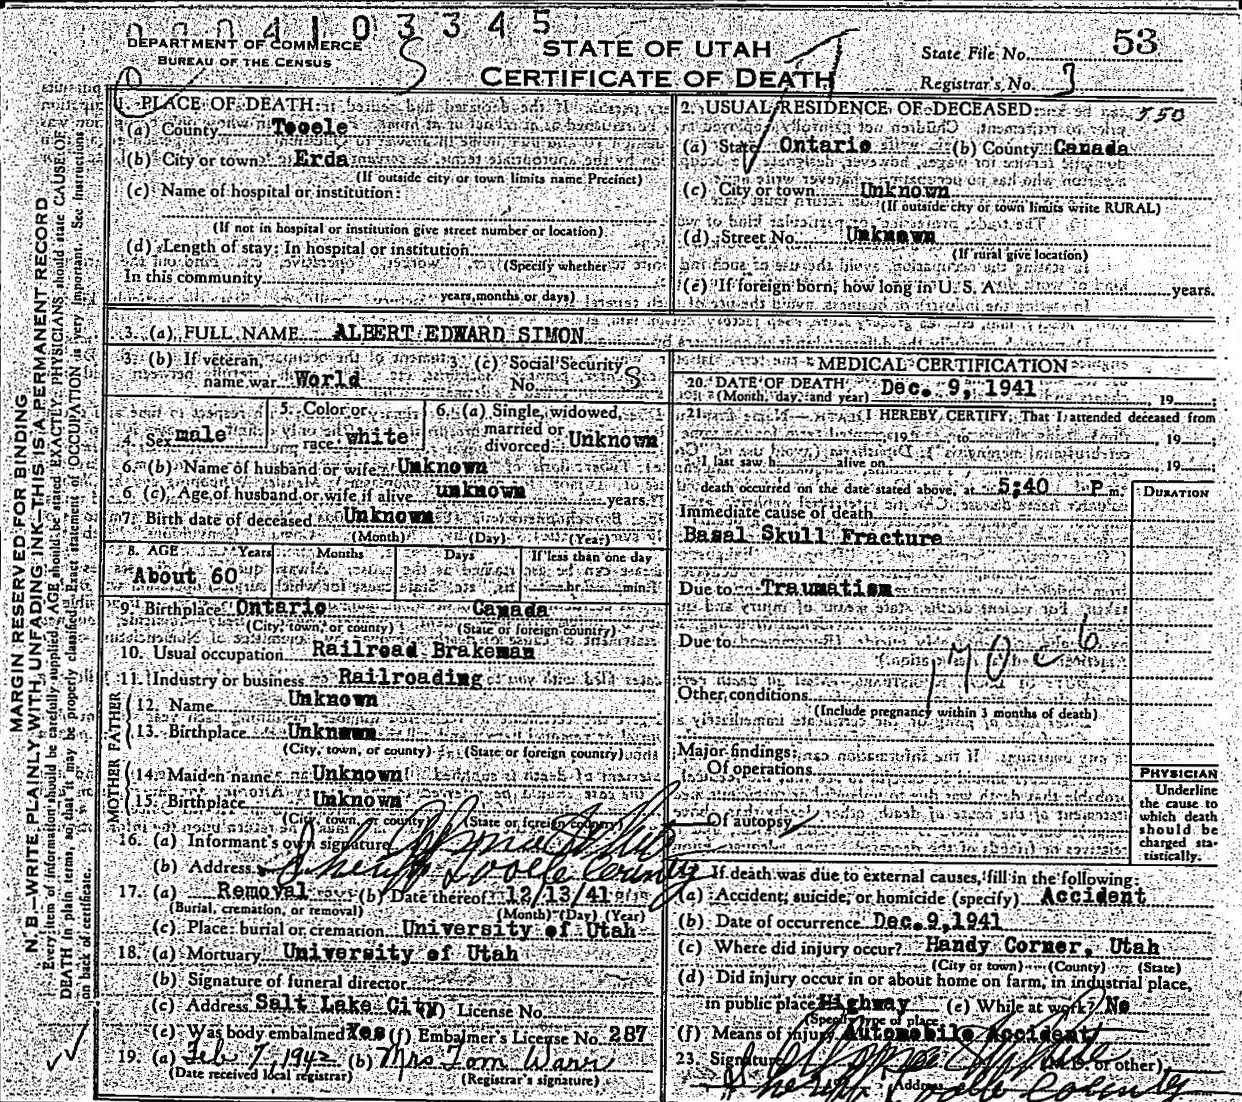 0004103345
DEPARTMENT OF COMMERCE
BUREAU OF THE CENSUS
S
STATE OF UTAH
CERTIFICATE OF DEATH
State File No. 53
Registrar's No. 3
1. PLACE OF DEATH:
(a) County Tooele
(b) City or town Erda
(If outside city or town limits name Precinct)
(c) Name of hospital or institution:
(If not in hospital or institution give street number or location)
(d) Length of stay: In hospital or institution
(Specify whether
In this community
years, months or days)
2. USUAL RESIDENCE OF DECEASED: 550
(a) State Ontario (b) County Canada
(c) City or town Unknown
(If outside city or town limits write RURAL)
(d) Street No. Unknown
(If rural give location)
(e) If foreign born, how long in U. S. A. years.
3. (a) FULL NAME ALBERT EDWARD SIMON
3. (b) If veteran, name war World
3. (c) Social Security No. S
4. Sex male
5. Color or race white
6. (a) Single, widowed, married or divorced Unknown
6. (b) Name of husband or wife Unknown
6. (c) Age of husband or wife if alive unknown years.
7. Birth date of deceased Unknown
(Month) (Day) (Year)
8. AGE Years Months Days If less than one day
About 60 hr. min.
9. Birthplace Ontario Canada
(City, town, or county) (State or foreign country)
10. Usual occupation Railroad Brakeman
11. Industry or business Railroading
FATHER
12. Name Unknown
13. Birthplace Unknown
(City, town, or county) (State or foreign country)
MOTHER
14. Maiden name Unknown
15. Birthplace Unknown
(City, town, or county) (State or foreign country)
16. (a) Informant's own signature
(b) Address Sheriff Tooele County
17. (a) Removal (b) Date thereof 12/13/41
(Burial, cremation, or removal) (Month) (Day) (Year)
(c) Place: burial or cremation University of Utah
18. (a) Mortuary University of Utah
(b) Signature of funeral director
(c) Address Salt Lake City License No.
(e) Was body embalmed Yes (f) Embalmer's License No. 287
19. (a) Feb 7, 1942 (b) Mrs Tom Warr
(Date received local registrar) (Registrar's signature)
MEDICAL CERTIFICATION
20. DATE OF DEATH Dec. 9, 1941
(Month, day, and year) , 19 ;
21. I HEREBY CERTIFY, That I attended deceased from
, 19 to , 19 ;
I last saw h alive on , 19 ;
death occurred on the date stated above, at 5:40 P m.
DURATION
Immediate cause of death
Basal Skull Fracture
Due to Traumatism
Due to
170c 6
Other conditions
(Include pregnancy within 3 months of death)
Major findings:
Of operations
Of autopsy
PHYSICIAN
Underline
the cause to
which death
should be
charged sta-
tistically.
If death was due to external causes, fill in the following:
(a) Accident, suicide, or homicide (specify) Accident
(b) Date of occurrence Dec.9,1941
(c) Where did injury occur? Handy Corner, Utah
(City or town) (County) (State)
(d) Did injury occur in or about home on farm, in industrial place,
in public place Highway (e) While at work? No
(Specify type of place)
(f) Means of injury Automobile Accident
23. Signature (M.D. or other)
Address Sheriff Tooele County
MARGIN RESERVED FOR BINDING
N. B.—WRITE PLAINLY WITH UNFADING INK—THIS IS A PERMANENT RECORD
Every item of information should be carefully supplied. AGE should be stated EXACTLY. PHYSICIANS should state CAUSE OF
DEATH in plain terms, so that it may be properly classified. Exact statement of OCCUPATION is very important. See instructions
on back of certificate.